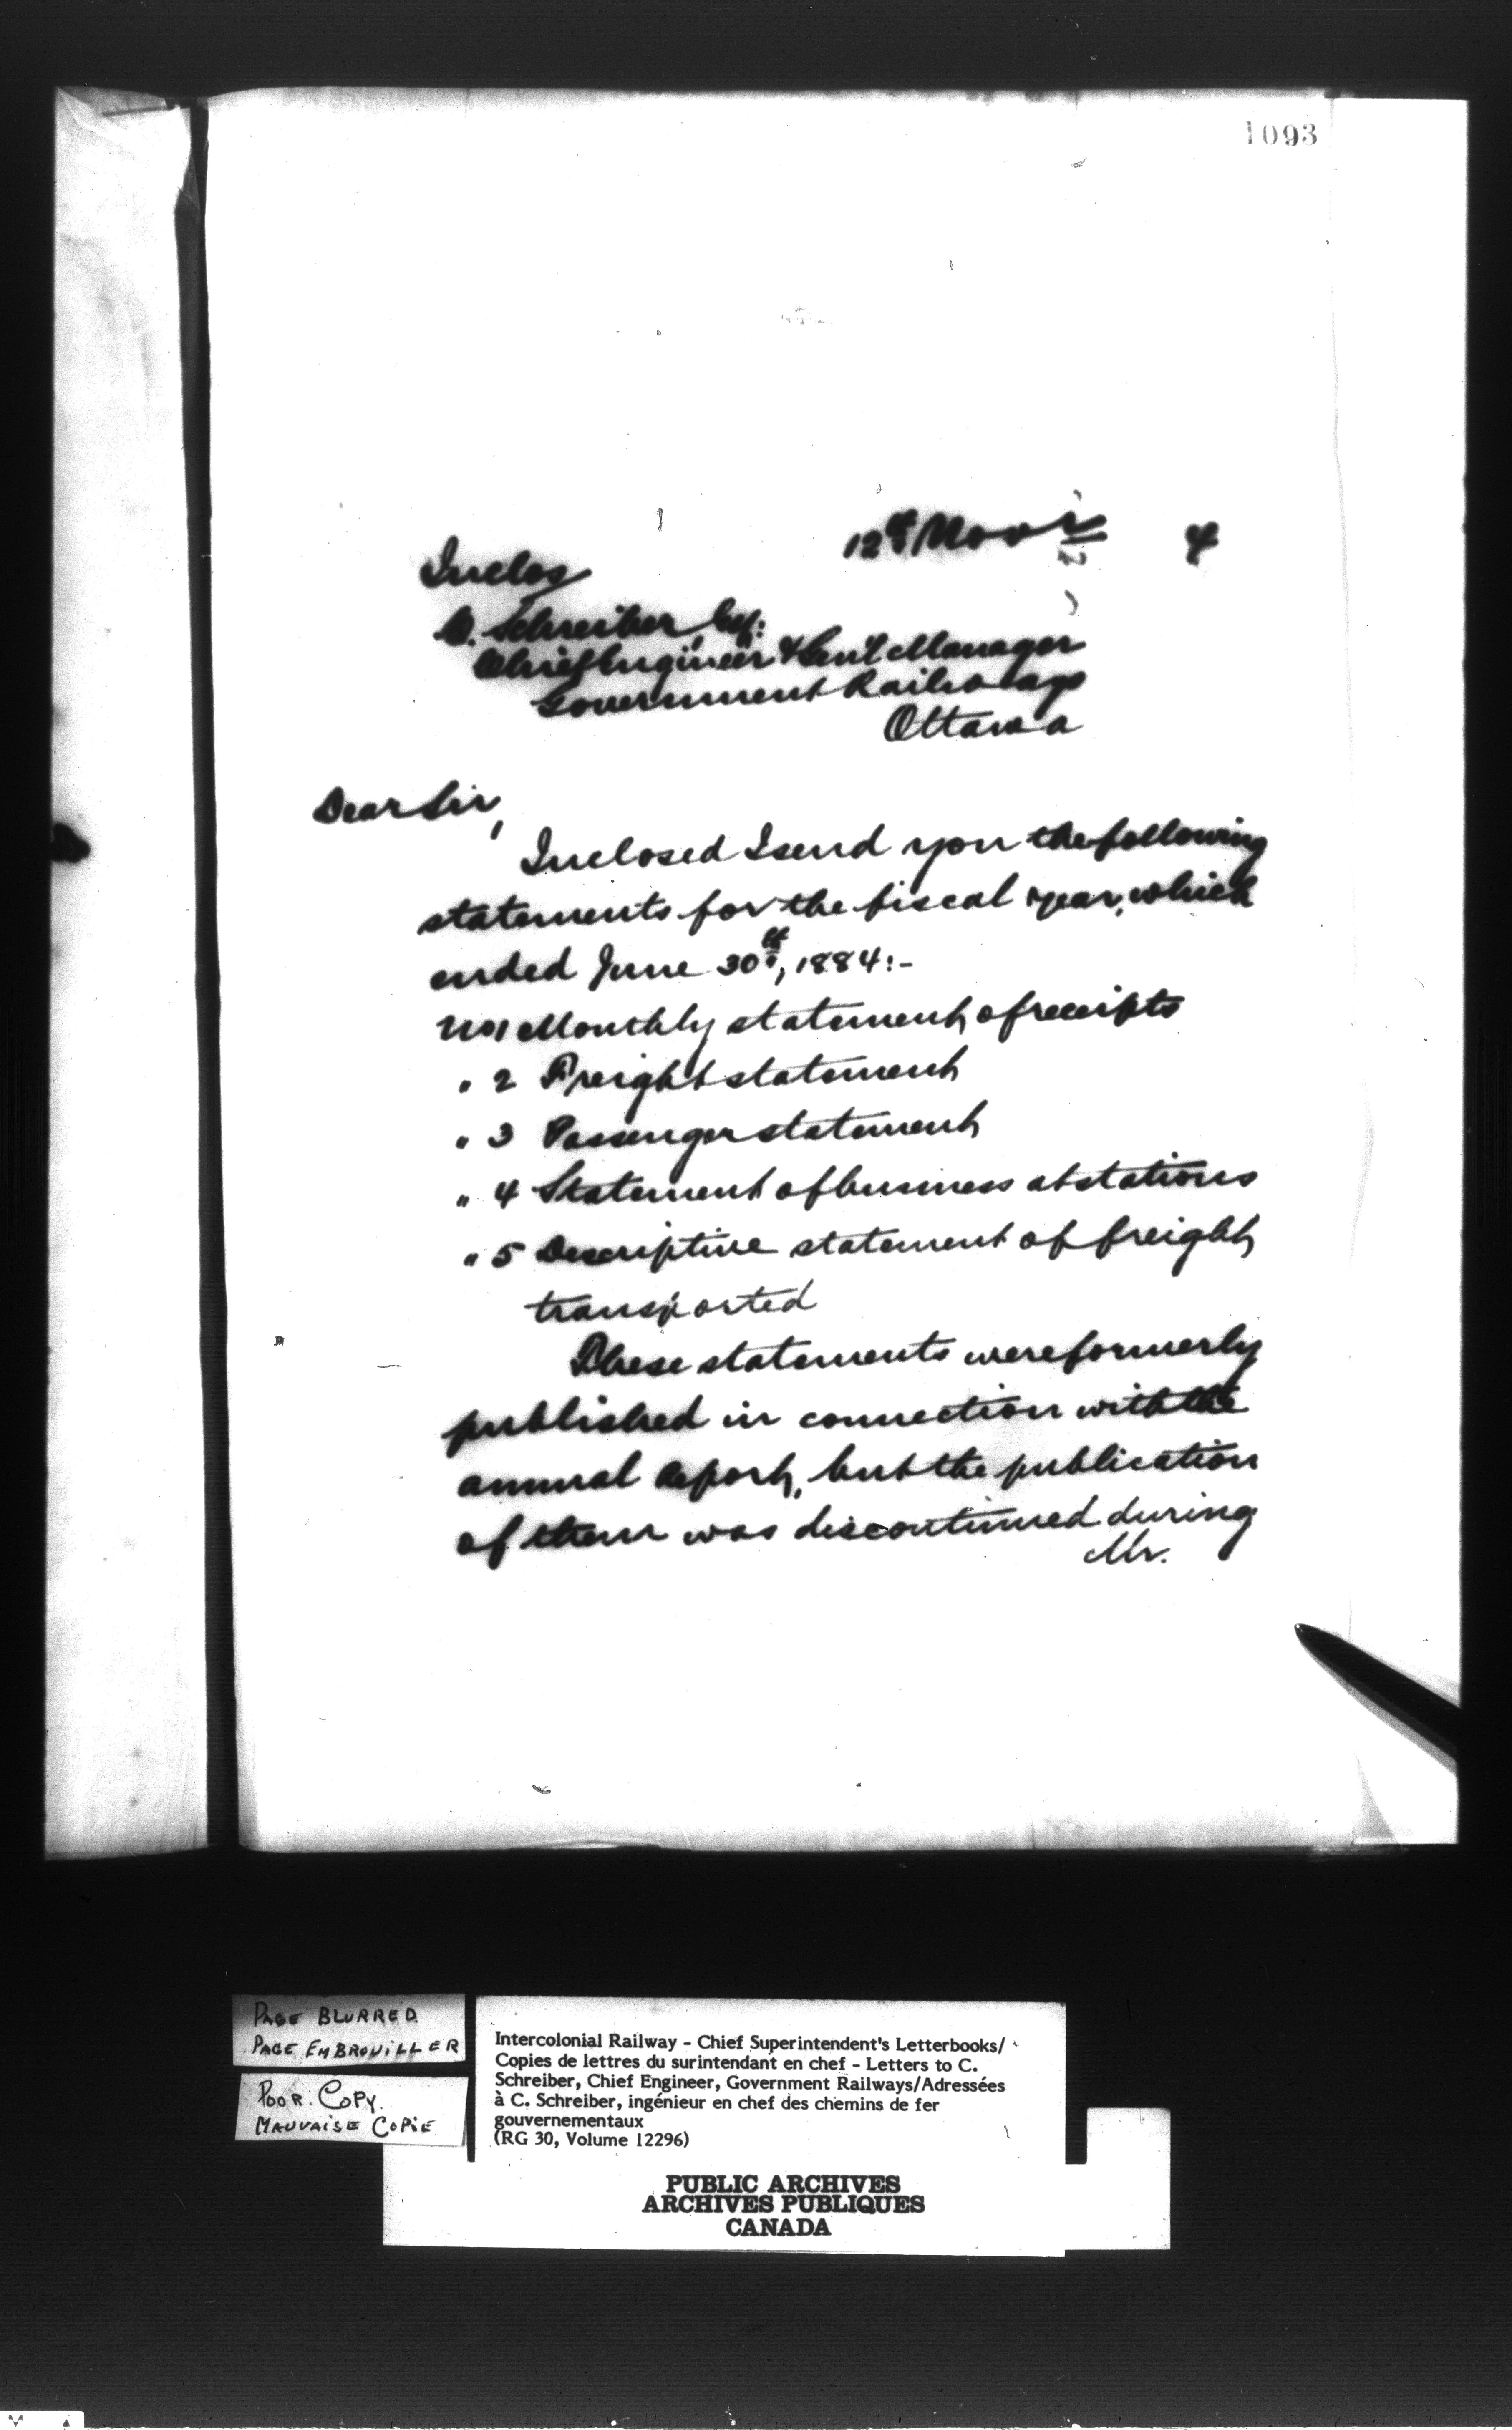 1093
12th Novr 4
Inclos
C. Schreiber, Esq:
Chief Engineer & Gen'l Manager
Government Railways
Ottawa
Dear Sir,
Inclosed I send you the following
statements for the fiscal year, which
ended June 30th, 1884:-
No 1 Monthly statement of receipts
" 2 Freight statement
" 3 Passenger statement
" 4 Statement of business at stations
" 5 Descriptive statement of freight
transported
These statements were formerly
published in connection with the
annual Report, but the publication
of them was discontinued during
Mr.
PAGE BLURRED
PAGE EMBROUILLER
POOR COPY.
MAUVAISE COPIE
Intercolonial Railway - Chief Superintendent's Letterbooks/
Copies de lettres du surintendant en chef - Letters to C.
Schreiber, Chief Engineer, Government Railways/Adressées
à C. Schreiber, ingénieur en chef des chemins de fer
gouvernementaux
(RG 30, Volume 12296)
PUBLIC ARCHIVES
ARCHIVES PUBLIQUES
CANADA